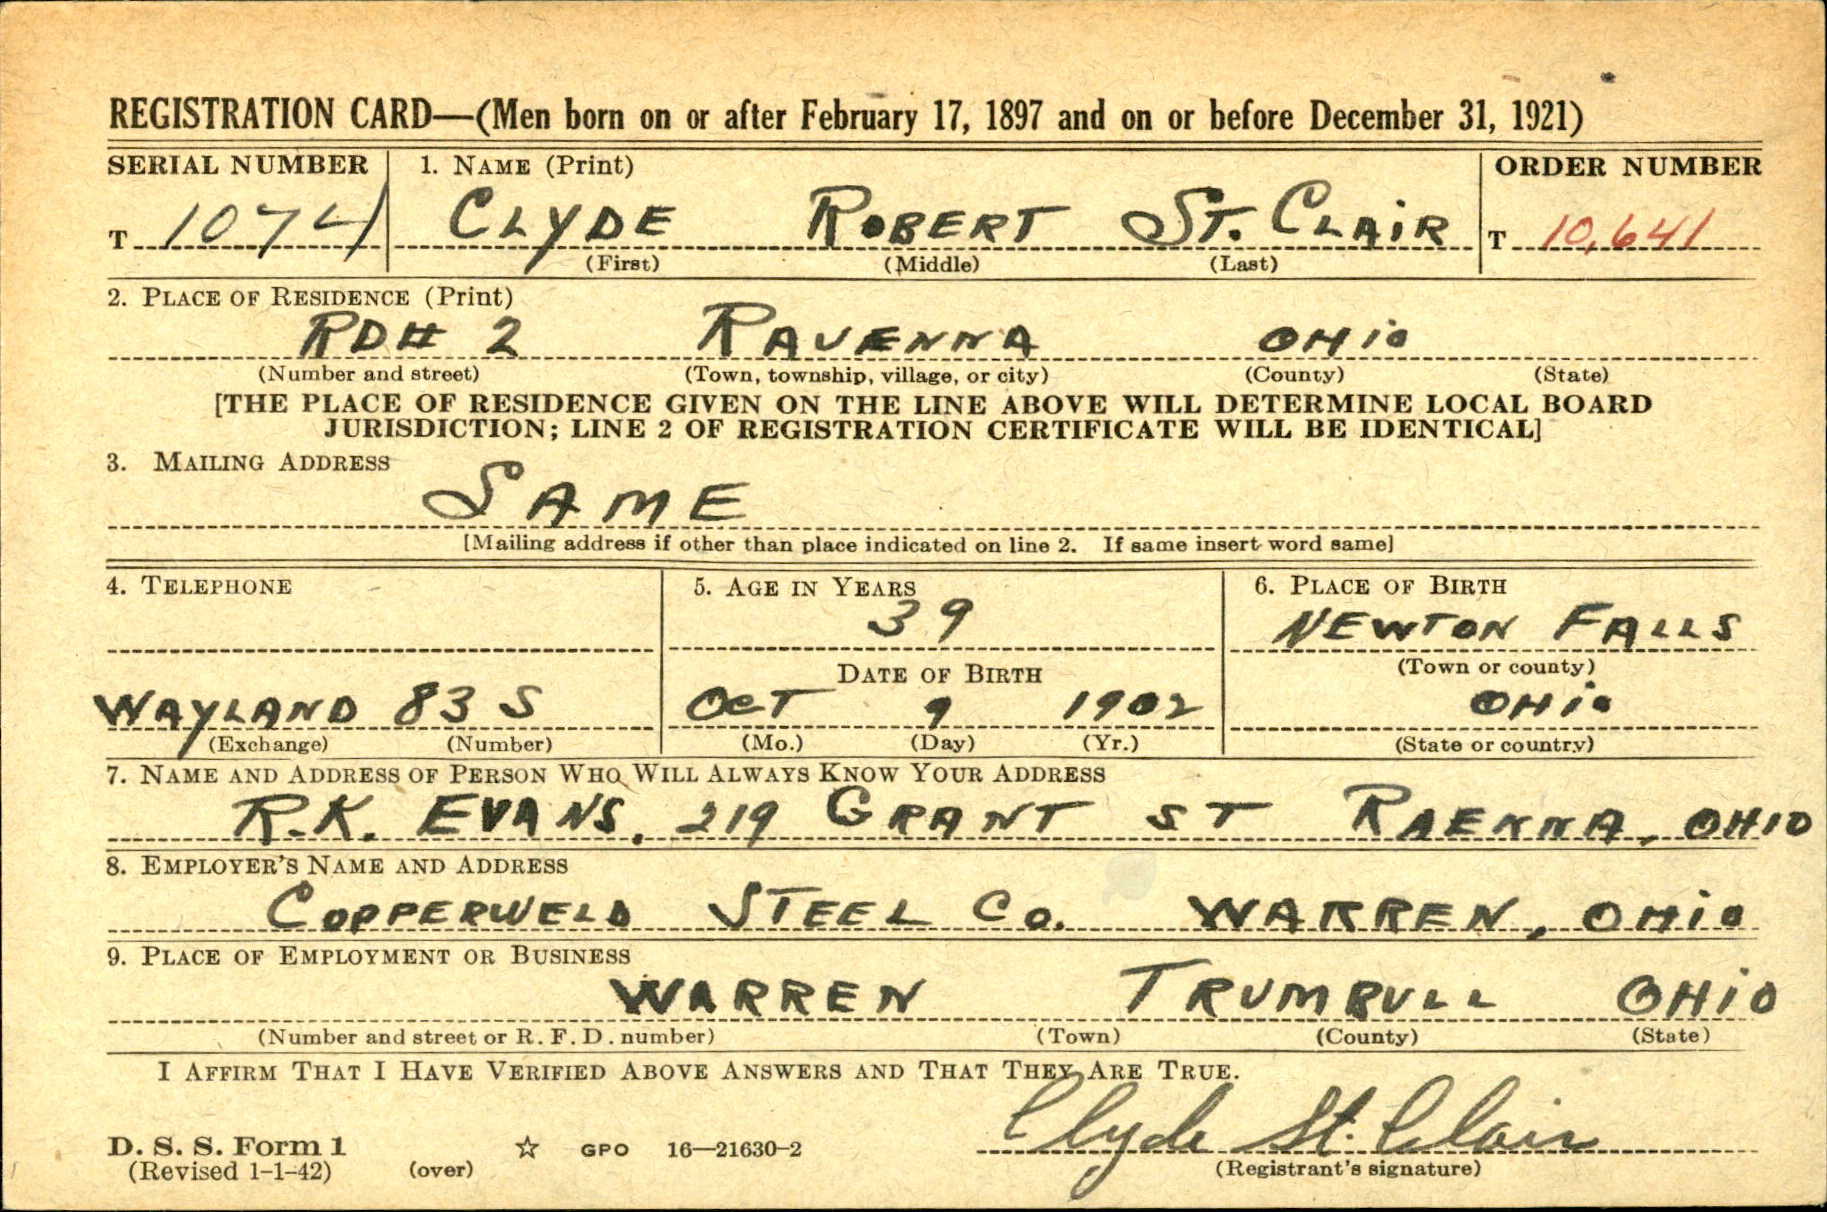 REGISTRATION CARD—(Men born on or after February 17, 1897 and on or before December 31, 1921)
SERIAL NUMBER 1. NAME (Print) ORDER NUMBER
T 1074 CLYDE ROBERT ST. CLAIR T 10,641
(First) (Middle) (Last)
2. PLACE OF RESIDENCE (Print)
RD# 2 RAVENNA OHIO
(Number and street) (Town, township, village, or city) (County) (State)
[THE PLACE OF RESIDENCE GIVEN ON THE LINE ABOVE WILL DETERMINE LOCAL BOARD
JURISDICTION; LINE 2 OF REGISTRATION CERTIFICATE WILL BE IDENTICAL]
3. MAILING ADDRESS
SAME
[Mailing address if other than place indicated on line 2. If same insert word same]
4. TELEPHONE 5. AGE IN YEARS 6. PLACE OF BIRTH
39 NEWTON FALLS
DATE OF BIRTH (Town or county)
WAYLAND 83 S OCT 9 1902 OHIO
(Exchange) (Number) (Mo.) (Day) (Yr.) (State or country)
7. NAME AND ADDRESS OF PERSON WHO WILL ALWAYS KNOW YOUR ADDRESS
R.K. EVANS, 219 GRANT ST RAENNA, OHIO
8. EMPLOYER'S NAME AND ADDRESS
COPPERWELD STEEL CO. WARREN, OHIO
9. PLACE OF EMPLOYMENT OR BUSINESS
WARREN TRUMBULL OHIO
(Number and street or R. F. D. number) (Town) (County) (State)
I AFFIRM THAT I HAVE VERIFIED ABOVE ANSWERS AND THAT THEY ARE TRUE.
D. S. S. Form 1 ☆ GPO 16—21630-2 Clyde St. Clair
(Revised 1-1-42) (over) (Registrant's signature)